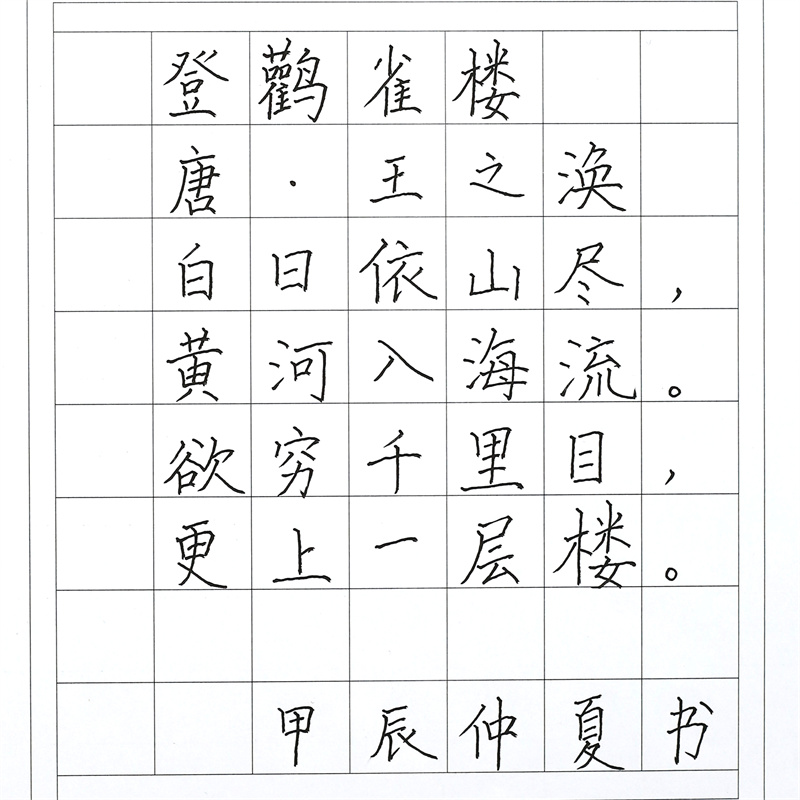 登鹳雀楼
唐·王之涣
白日依山尽，
黄河入海流。
欲穷千里目，
更上一层楼。
甲辰仲夏书